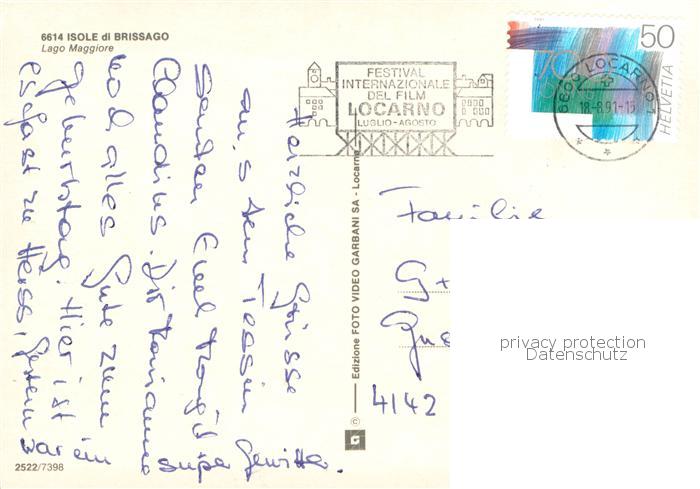 6614 ISOLE di BRISSAGO
Lago Maggiore
FESTIVAL
INTERNAZIONALE
DEL FILM
LOCARNO
LUGLIO - AGOSTO
6600 LOCARNO 1
18-8.91-15
50
HELVETIA
700
Herzliche Grüsse
aus dem Tessin
senden Euch
Claudius. Dir Marianne
noch alles Gute zum
Geburtstag. Hier ist
es fast zu heiss, gestern
war ein super Gewitter.
Familie
4142
Edizione FOTO VIDEO GARBANI SA - Locarno
©
G
2522/7398
privacy protection
Datenschutz